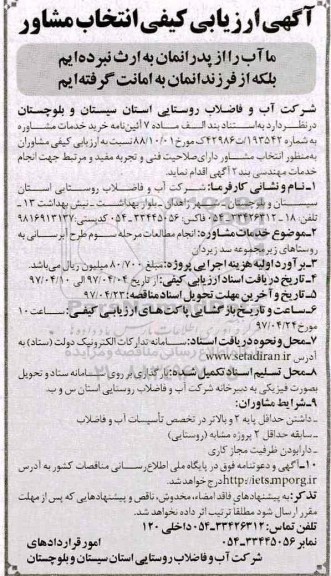 آگهی ارزیابی کیفی انتخاب مشاور
ما آب را از پدرانمان به ارث نبرده ایم
بلکه از فرزندانمان به امانت گرفته ایم
شرکت آب و فاضلاب روستایی استان سیستان و بلوچستان
در نظر دارد به استناد بند الف ماده ۷ آئین نامه خرید خدمات مشاوره
به شماره ۱۹۳۵۴۲/ت۴۲۹۸۶ک مورخ ۸۸/۱۰/۰۱ نسبت به ارزیابی کیفی مشاوران
به منظور انتخاب مشاور دارای صلاحیت فنی و تجربه مفید و مرتبط جهت انجام
خدمات مهندسی بند ۲ آگهی اقدام نماید.
۱-نام و نشانی کارفرما: شرکت آب و فاضلاب روستایی استان
سیستان و زاهدان - بلوار بهداشت - نبش بهداشت ۱۳ -
تلفن: ۱۸-۳۳۴۲۶۳۱۲-۰۵۴ فاکس: ۳۳۴۴۵۰۵۶-۰۵۴ کدپستی: 9816913137
۲-موضوع خدمات مشاوره: انجام مطالعات مرحله سوم طرح آبرسانی به
روستاهای زیرمجموعه سد زیردان
۳-برآورد اولیه هزینه اجرایی پروژه: مبلغ ۸۰/۷۰۰ میلیون ریال می باشد.
۴-تاریخ دریافت اسناد ارزیابی کیفی: از تاریخ ۹۷/۰۴/۰۴ الی ۹۷/۰۴/۱۰
۵-تاریخ و آخرین مهلت تحویل اسناد مناقصه: ۹۷/۰۴/۲۳
۶-ساعت و تاریخ بازگشایی پاکت های ارزیابی کیفی: ساعت ۱۰
مورخ ۹۷/۰۴/۲۴
۷-محل و نحوه دریافت اسناد: سامانه تدارکات الکترونیک دولت (ستاد) به
آدرس www.setadiran.ir
۸-محل تسلیم اسناد تکمیل شده: بارگذاری بر روی سامانه ستاد و تحویل
بصورت فیزیکی به دبیرخانه شرکت آب و فاضلاب روستایی استان س و ب.
۹-شرایط مشاوران:
- داشتن حداقل پایه ۲ و بالاتر در تخصص تأسیسات آب و فاضلاب
- سابقه حداقل ۲ پروژه مشابه (روستایی)
- دارا بودن ظرفیت مجاز کاری
۱۰-آگهی و دعوتنامه فوق در پایگاه ملی اطلاع رسانی مناقصات کشور به آدرس
http://iets.mporg.ir درج خواهد شد.
تذکر: به پیشنهادهای فاقد امضاء، مخدوش، ناقص و پیشنهادهایی که پس از مهلت
مقرر ارسال شود مطلقا ترتیب اثر داده نخواهد شد.
تلفن تماس: ۳۳۴۲۶۳۱۲-۰۵۴ داخلی ۱۲۰
نمابر ۳۳۴۴۵۰۵۶-۰۵۴ امور قراردادهای
شرکت آب و فاضلاب روستایی استان سیستان و بلوچستان